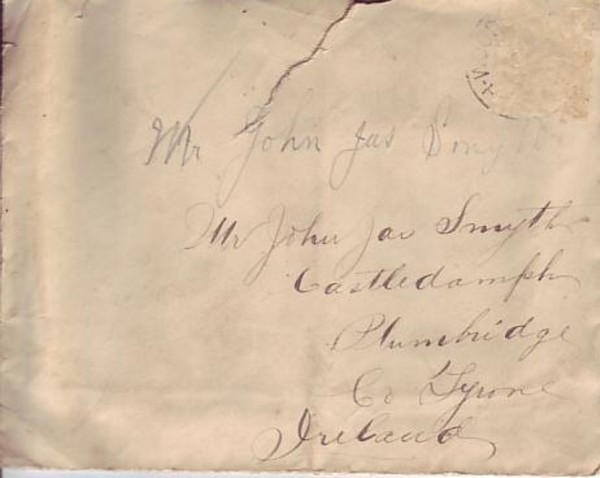 Mr John Jas Smyth
Mr John Jas Smyth
Castledamph
Plumbridge
Co Tyrone
Ireland